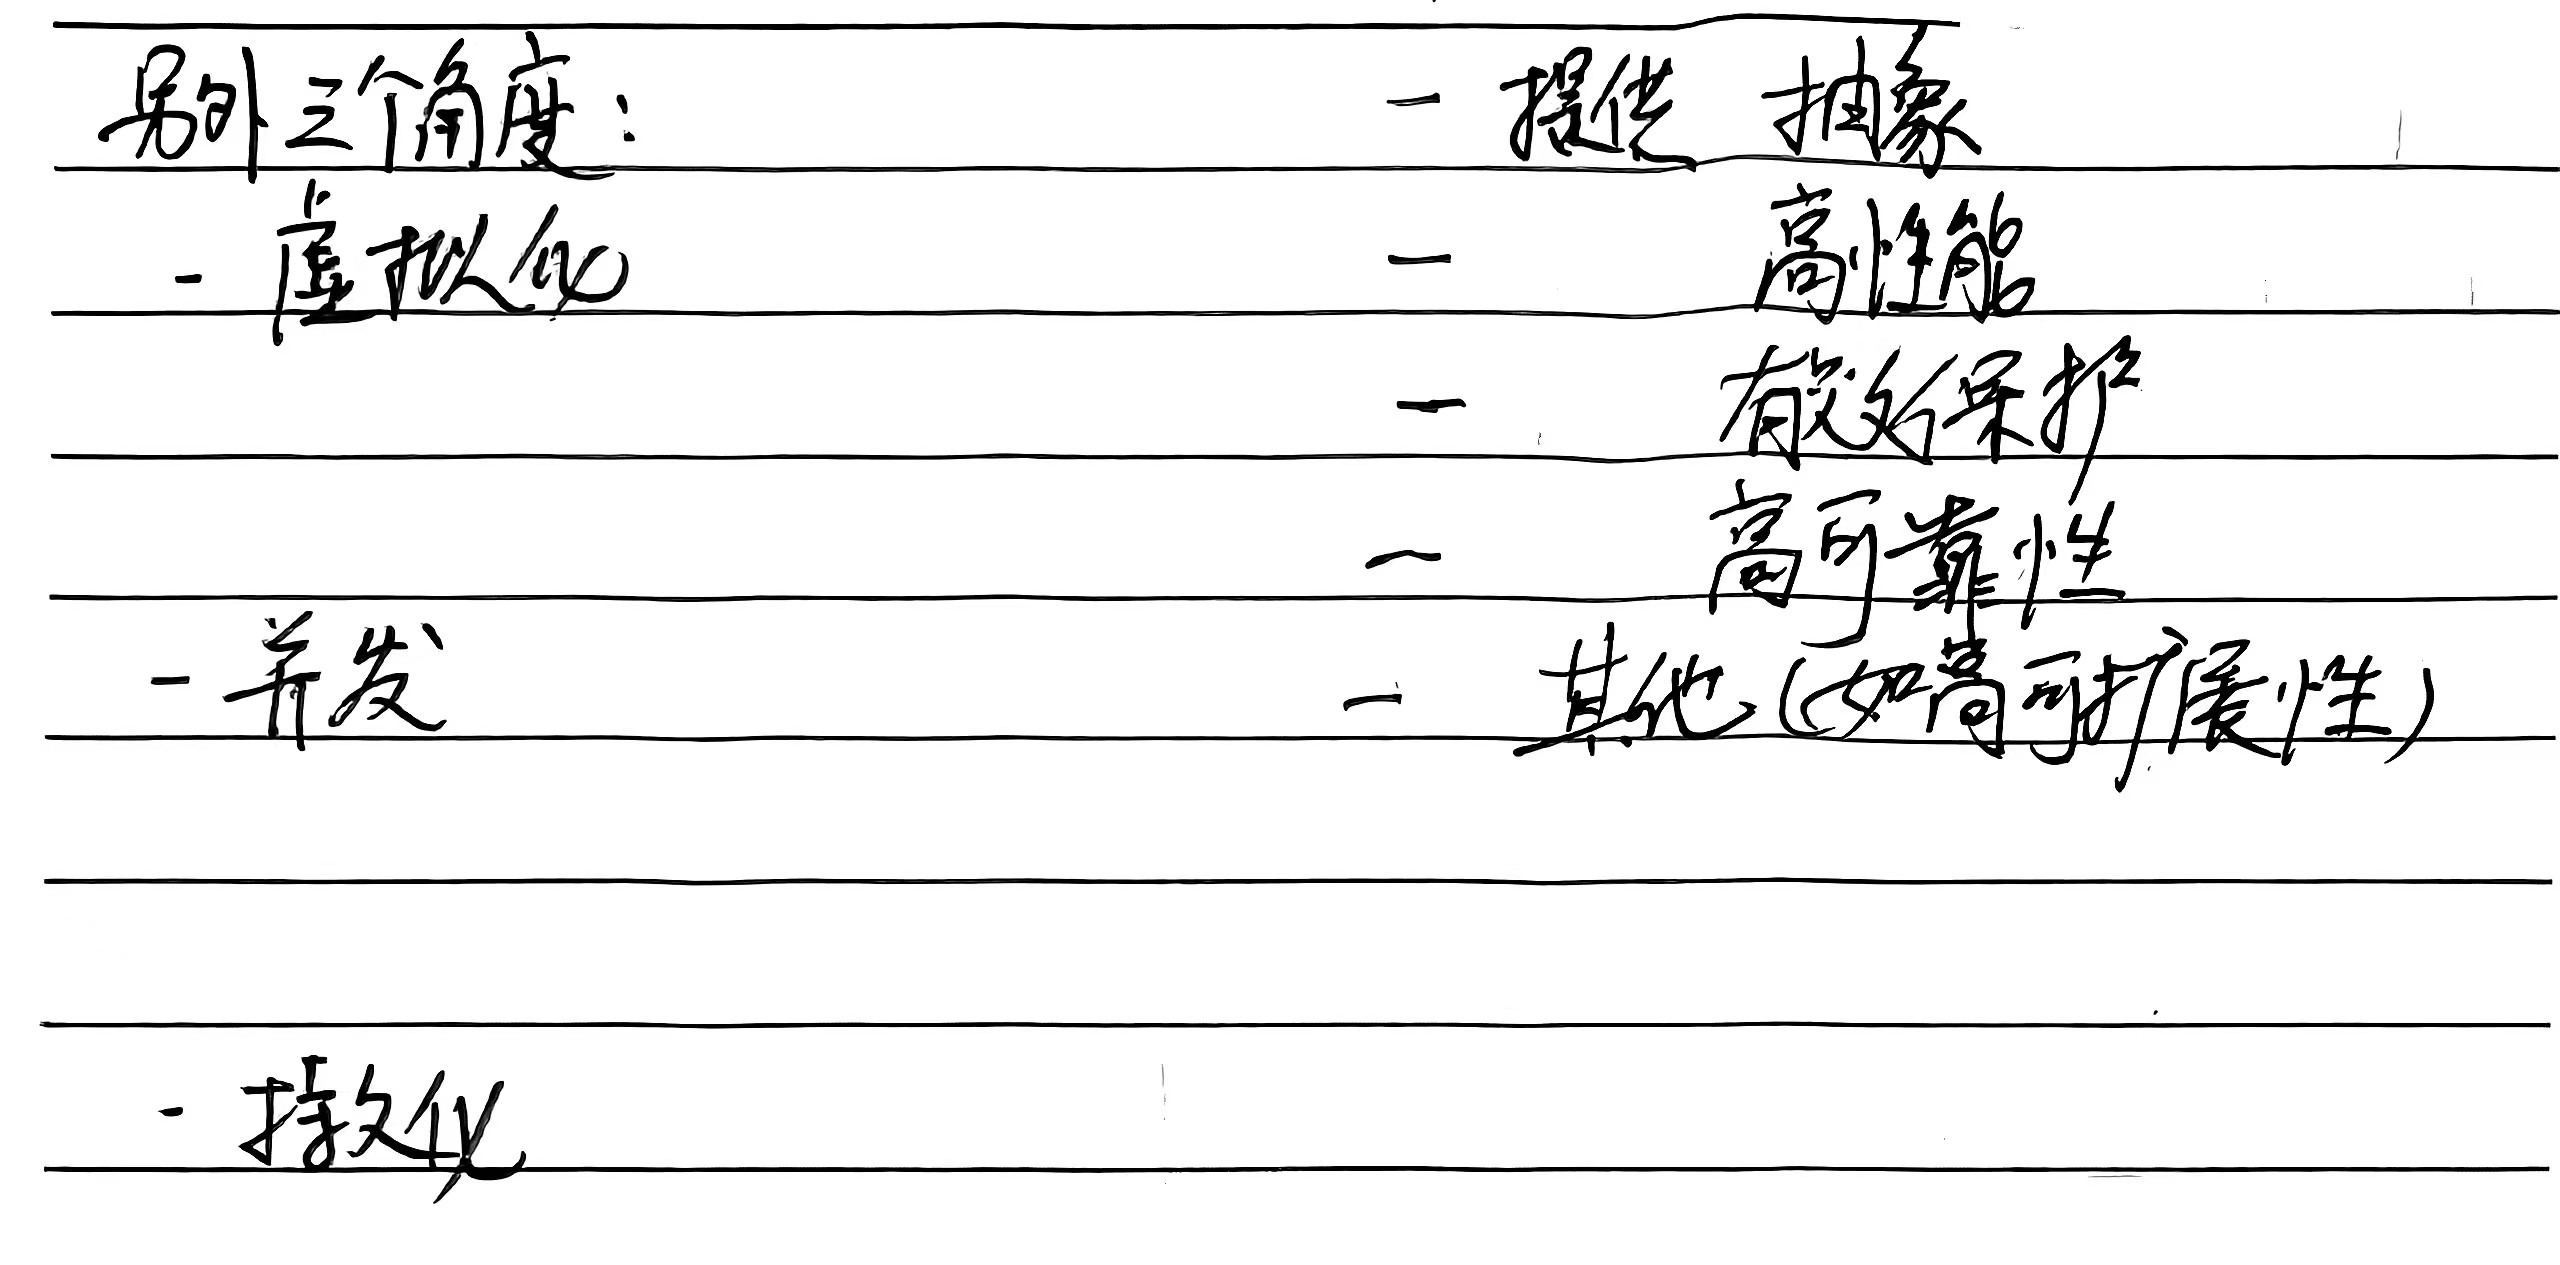 另外三个角度：
- 虚拟化
- 并发
- 持久化
- 提供 抽象
- 高性能
- 有效保护
- 高可靠性
- 其他（如高可扩展性）